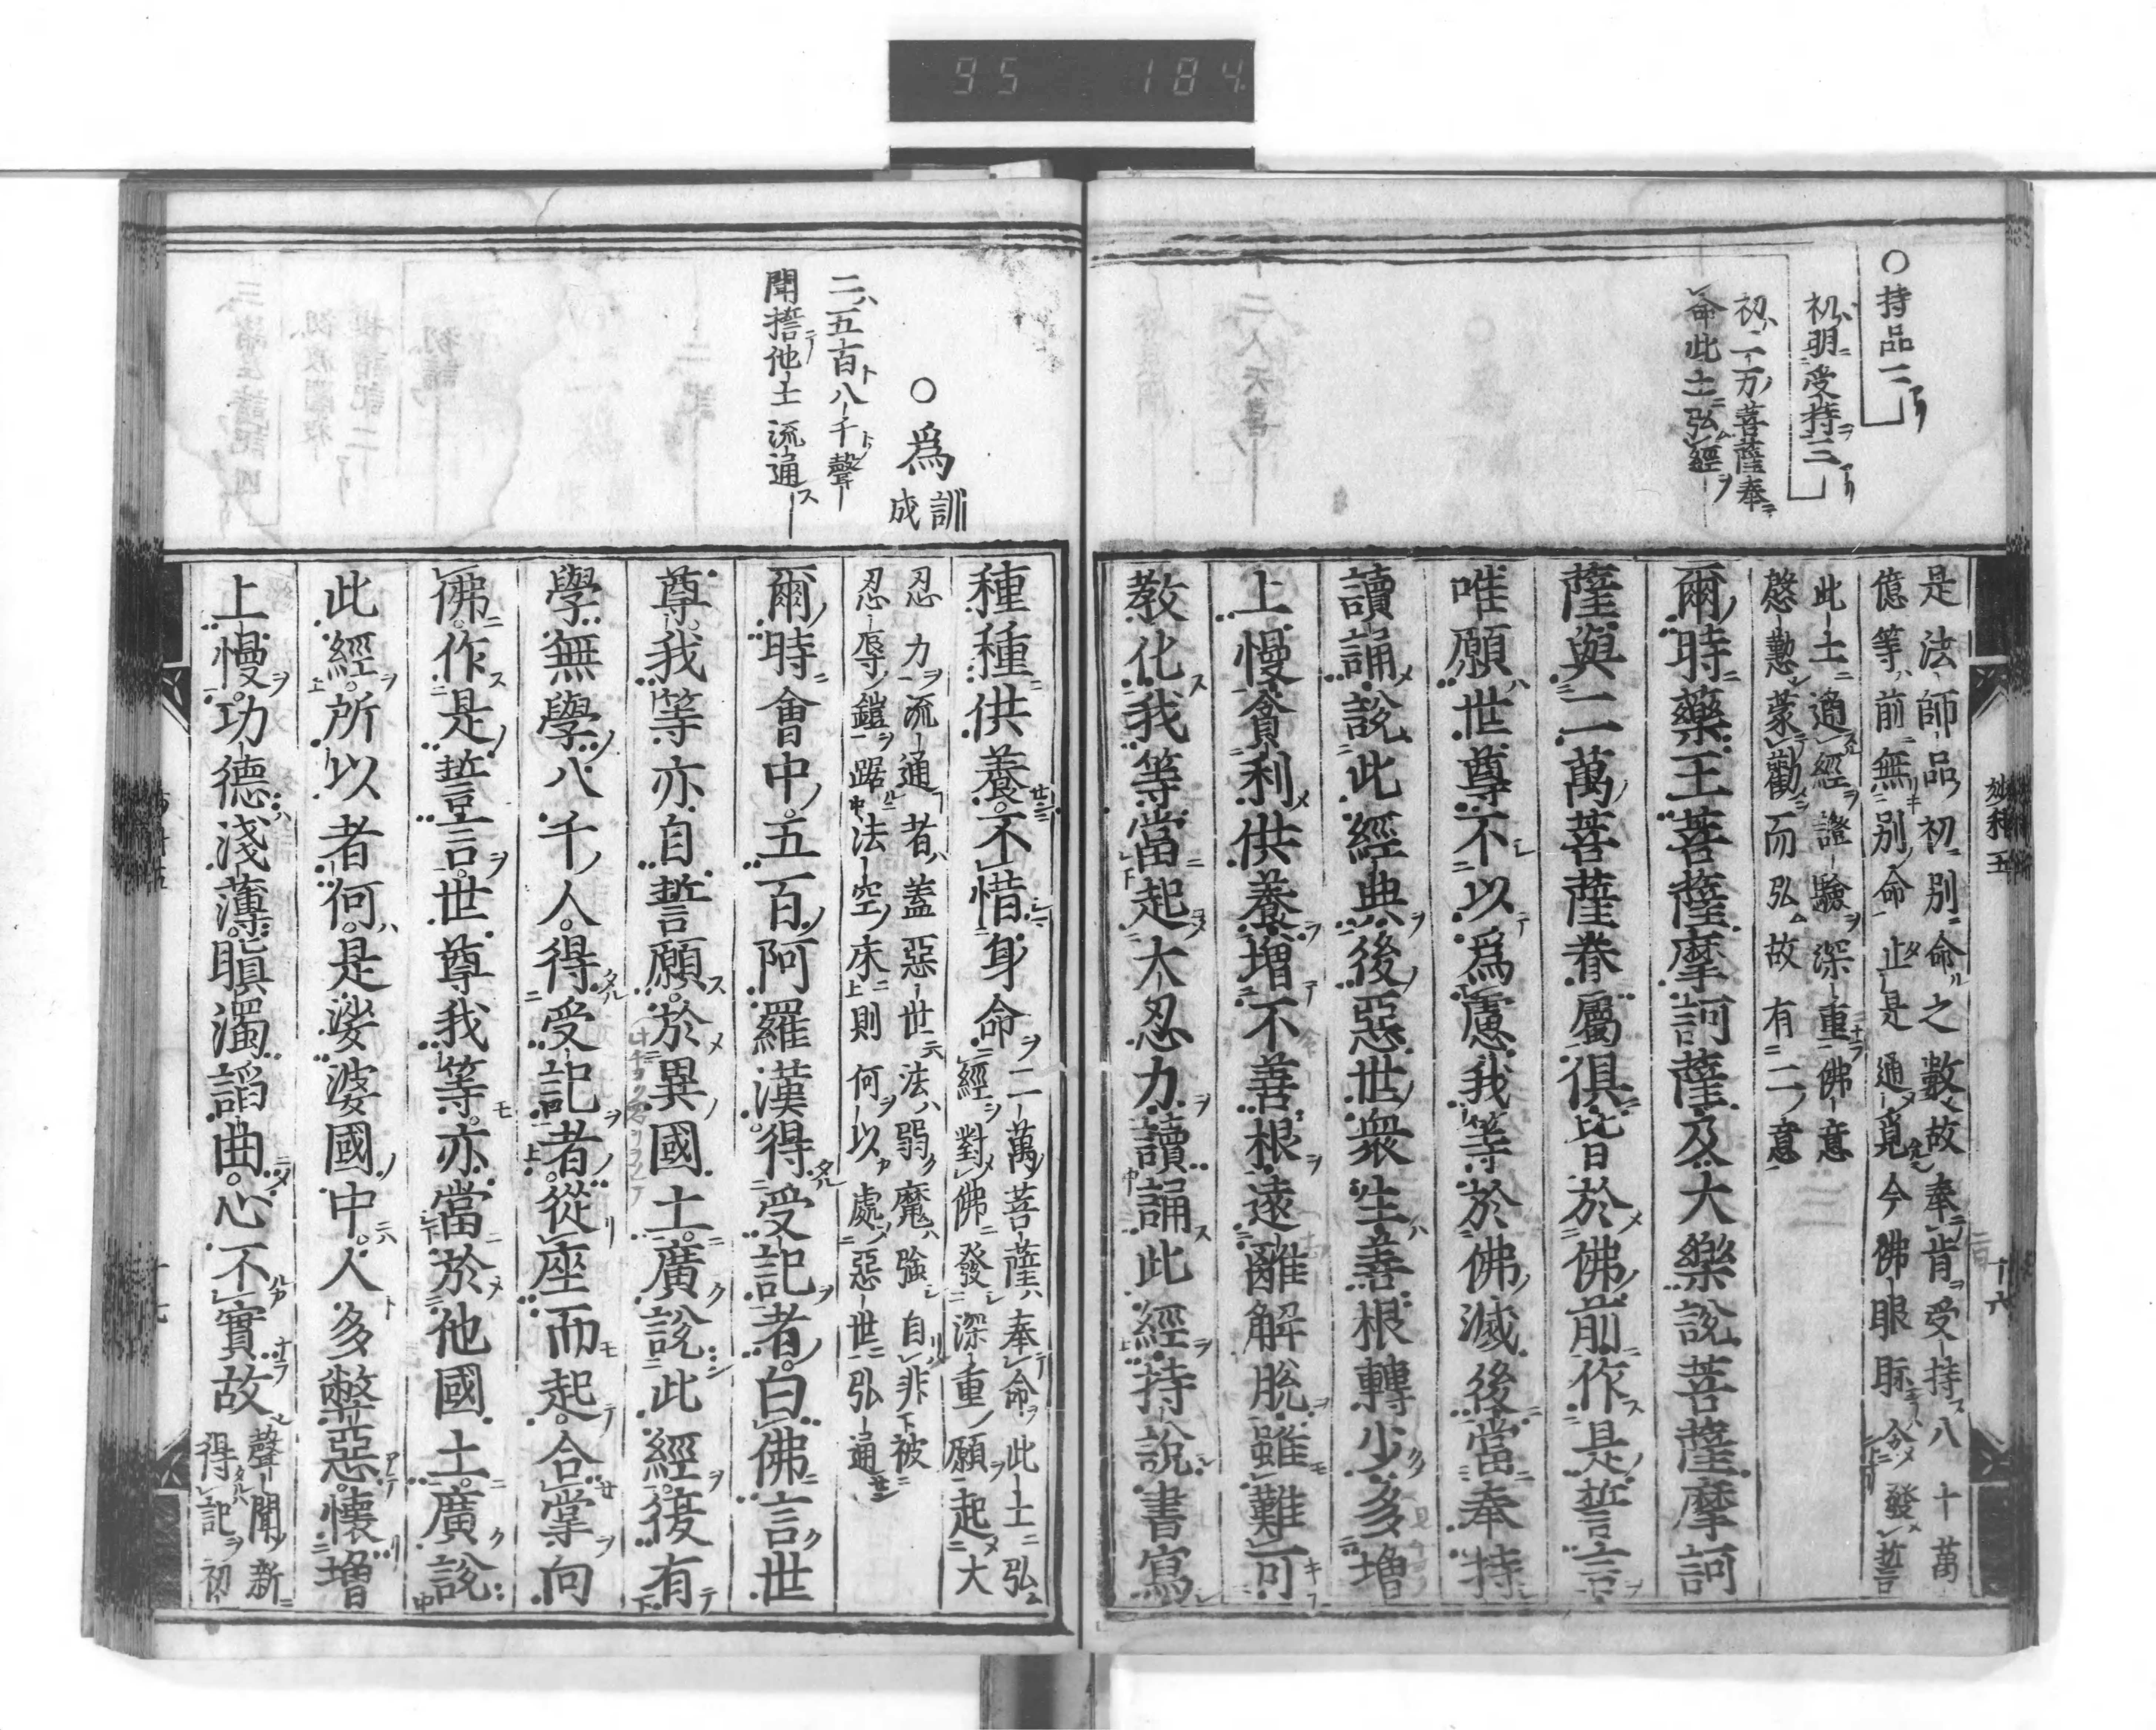 95 184
○持品二
初明受持三
初二万菩薩奉
命此土弘經
是法師品初別命之數故奉旨受持八十萬
億等前無別命止是通覓今佛眼眎令發誓
此土通經證驗深重佛意
慇懃蒙勸而弘故有二意
爾時藥王菩薩摩訶薩及大樂説菩薩摩訶
薩與二萬菩薩眷屬俱皆於佛前作是誓言
唯願世尊不以爲慮我等於佛滅後當奉持
讀誦説此經典後惡世衆生善根轉少多增
上慢貪利供養增不善根遠離解脱雖難可
教化我等當起大忍力讀誦此經持説書寫
○爲訓成
二五百八千聲
聞捨他土流通
種種供養不惜身命二萬菩薩奉命此土弘
經對佛發深重願起大
忍力流通者蓋惡世法弱魔強自非被
忍辱鎧踞法空床則何以處惡世弘通
爾時會中五百阿羅漢得受記者白佛言世
尊我等亦自誓願於異國土廣説此經復有
學無學八千人得受記者從座而起合掌向
佛作是誓言世尊我等亦當於他國土廣説
此經所以者何是娑婆國中人多弊惡懷增
上慢功德淺薄瞋濁諂曲心不實故聲聞新
得記初